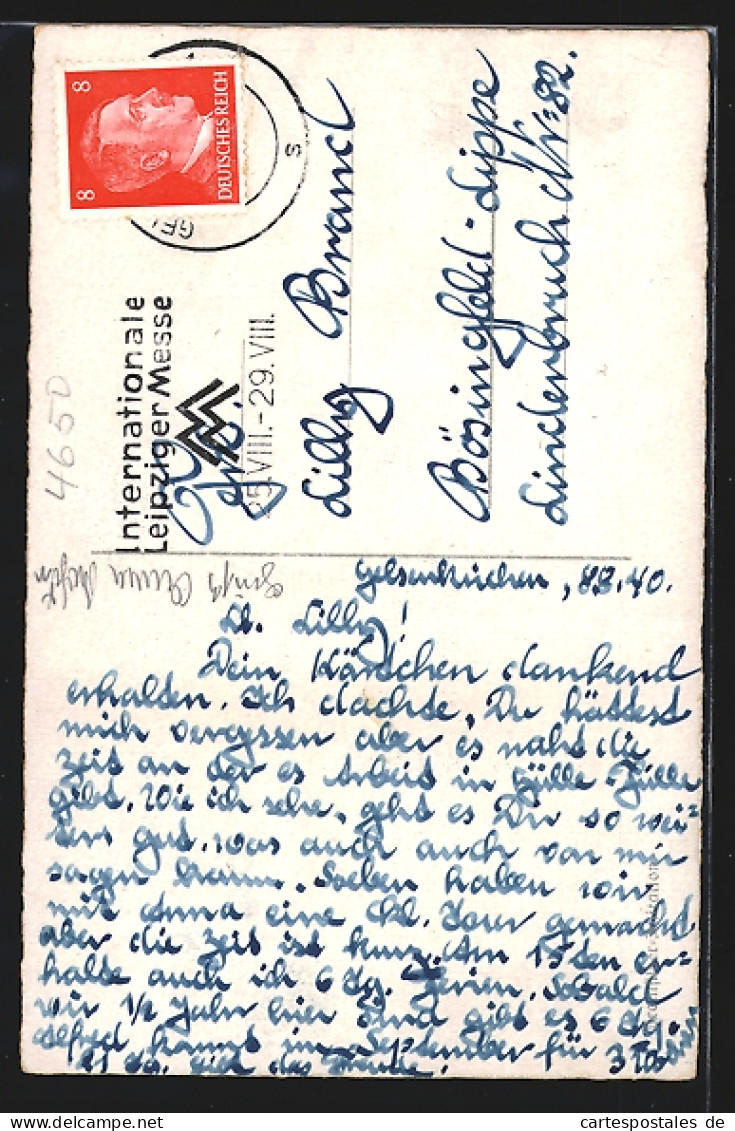 8 8
DEUTSCHES REICH
GEL
s
Internationale
Leipziger Messe
25.VIII.-29.VIII.
Frl.
Lilly Brand
Bösingfeld-Lippe
Lindenbruch Nr. 82.
4650
Anna
Gelsenkirchen, 8.8.40.
Lb. Lilly!
Dein Kärtchen dankend
erhalten. Ich dachte, Du hättest
mich vergessen aber es naht die
Zeit an der es Arbeit in Hülle Fülle
gibt. Wie ich sehe, geht es Dir so wei=
tens gut. was auch auch von mir
sagen kann. Soeben haben wir
mit Anna eine kl. Tour gemacht
aber die Zeit ist kurz. Am 15 ten er=
halte auch ich 6 Tg. Ferien. Sobald
wir 1/2 Jahr hier sind gibt es 6 Tg.
Alfred kommt im September für 3 Wochen
21 Tg. gibt das Freude.
cartespostales.de